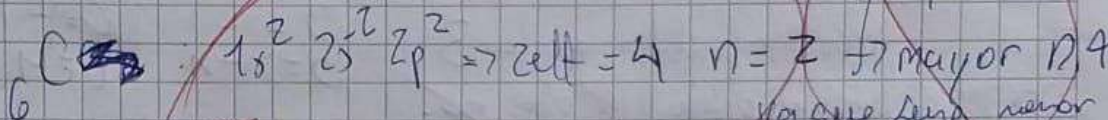 ₆C : 1s² 2s² 2p² => Zeff = 4 n = 2 → mayor
ya que menor